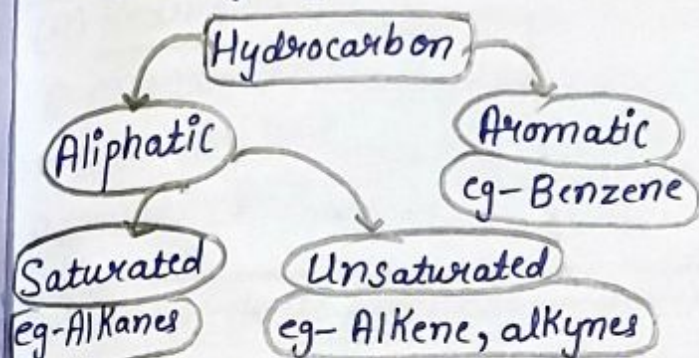 Hydrocarbon
Aliphatic
Aromatic
eg- Benzene
Saturated
Unsaturated
eg-AlKanes
eg- AlKene, alKynes